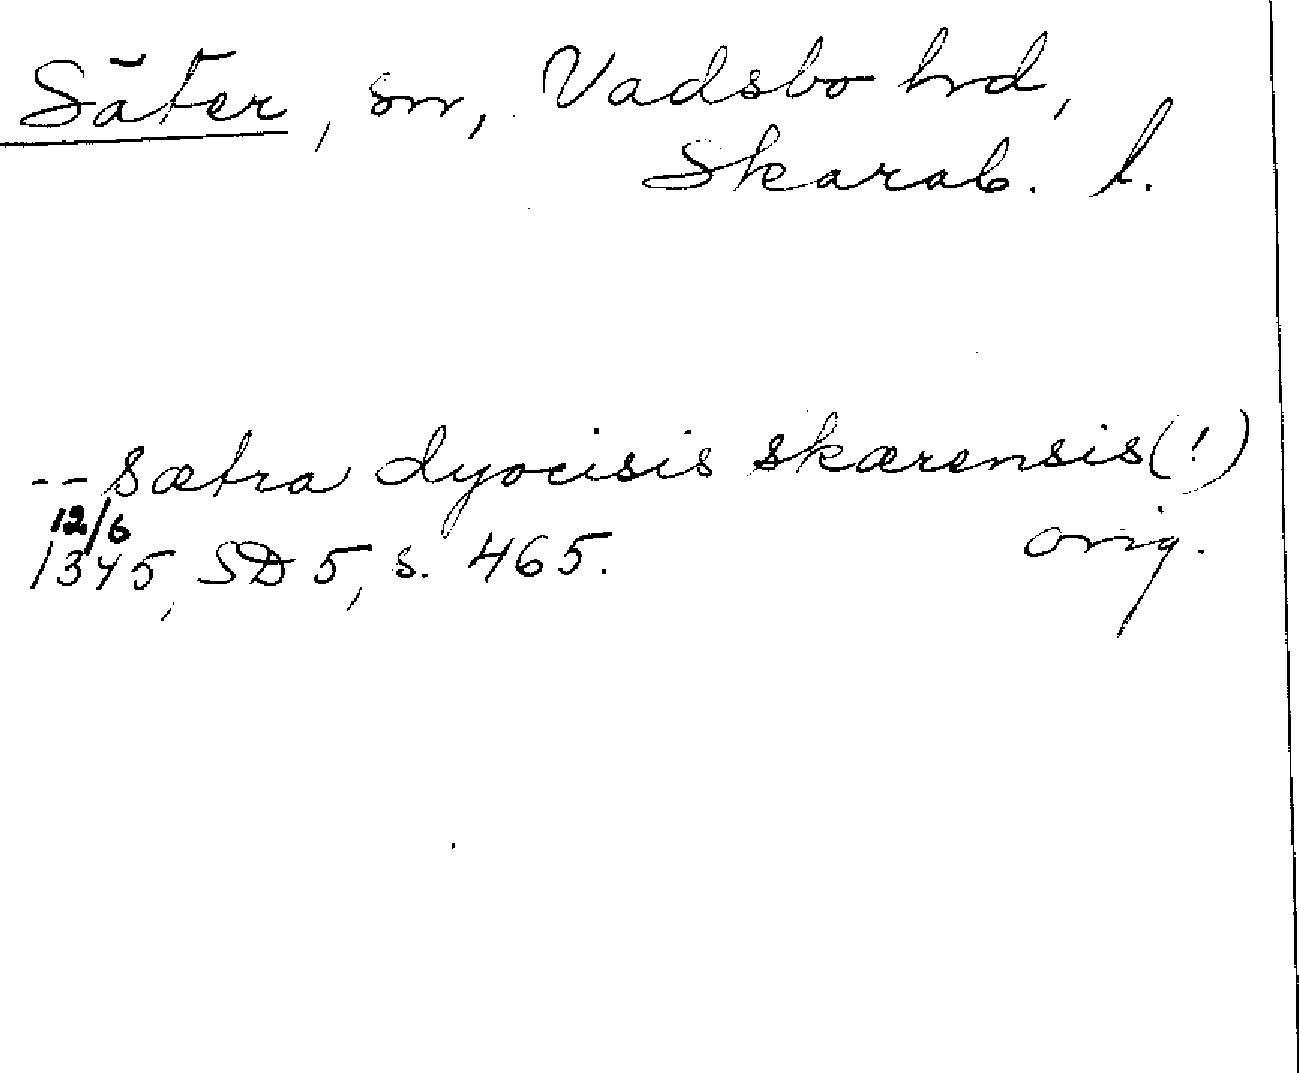 Säter, sn, Vadsbo hd,
Skarab. l.
-- Sætra dyocisis skærensis (!)
12/6
1345, SD 5, s. 465. orig.